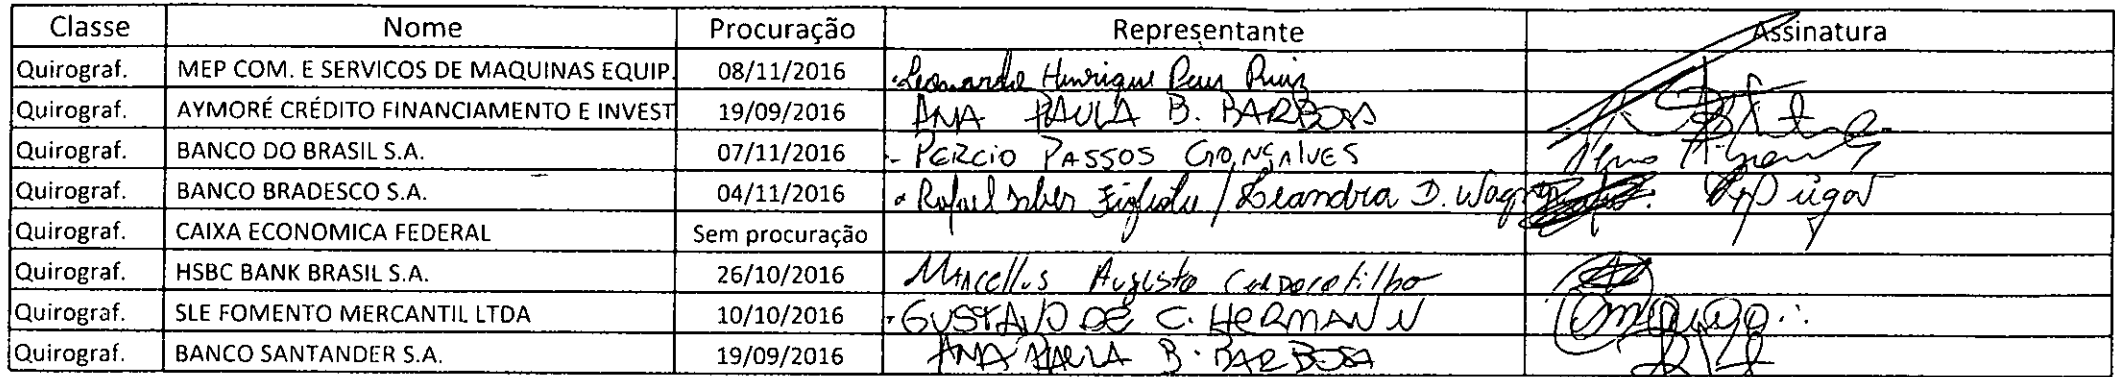 Classe Nome Procuração Representante Assinatura
Quirograf. MEP COM. E SERVICOS DE MAQUINAS EQUIP. 08/11/2016 Leonardo Henrique Ruiz
Quirograf. AYMORÉ CRÉDITO FINANCIAMENTO E INVEST 19/09/2016 ANA PAULA B. BARBOSA
Quirograf. BANCO DO BRASIL S.A. 07/11/2016 - PERCIO PASSOS GONÇALVES
Quirograf. BANCO BRADESCO S.A. 04/11/2016 Rafael / Leandra D.
Quirograf. CAIXA ECONOMICA FEDERAL Sem procuração
Quirograf. HSBC BANK BRASIL S.A. 26/10/2016 Augusto
Quirograf. SLE FOMENTO MERCANTIL LTDA 10/10/2016 GUSTAVO DE C. HERMANN
Quirograf. BANCO SANTANDER S.A. 19/09/2016 ANA PAULA B. BARBOSA